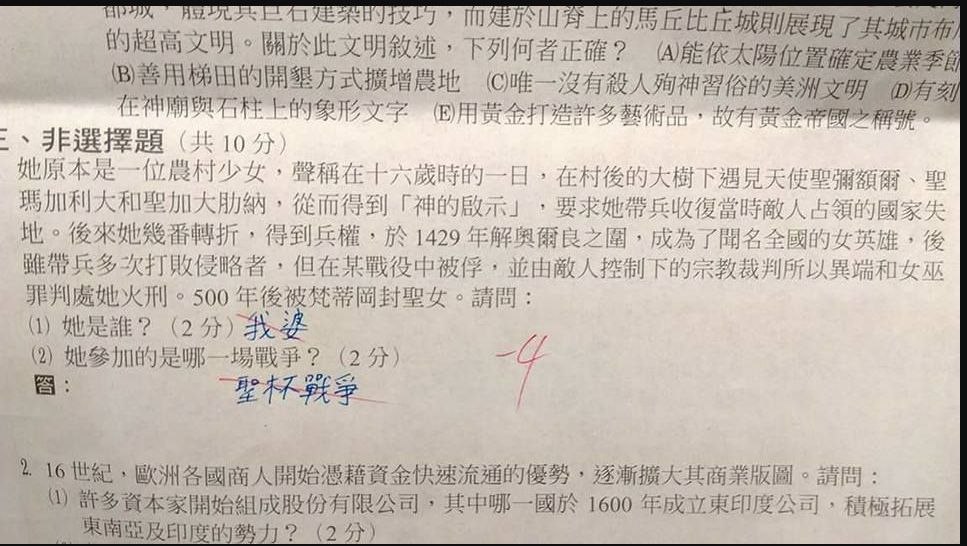 都城，體現其巨石建築的技巧，而建於山脊上的馬丘比丘城則展現了其城市布
的超高文明。關於此文明敘述，下列何者正確？ (A)能依太陽位置確定農業季節
(B)善用梯田的開墾方式擴增農地 (C)唯一沒有殺人殉神習俗的美洲文明 (D)有刻
在神廟與石柱上的象形文字 (E)用黃金打造許多藝術品，故有黃金帝國之稱號。
三、非選擇題（共 10 分）
她原本是一位農村少女，聲稱在十六歲時的一日，在村後的大樹下遇見天使聖彌額爾、聖
瑪加利大和聖加大肋納，從而得到「神的啟示」，要求她帶兵收復當時敵人占領的國家失
地。後來她幾番轉折，得到兵權，於 1429 年解奧爾良之圍，成為了聞名全國的女英雄，後
雖帶兵多次打敗侵略者，但在某戰役中被俘，並由敵人控制下的宗教裁判所以異端和女巫
罪判處她火刑。500 年後被梵蒂岡封聖女。請問：
(1) 她是誰？（2 分）我婆
(2) 她參加的是哪一場戰爭？（2 分）
-4
答：
聖杯戰爭
2. 16 世紀，歐洲各國商人開始憑藉資金快速流通的優勢，逐漸擴大其商業版圖。請問：
(1) 許多資本家開始組成股份有限公司，其中哪一國於 1600 年成立東印度公司，積極拓展
東南亞及印度的勢力？（2 分）